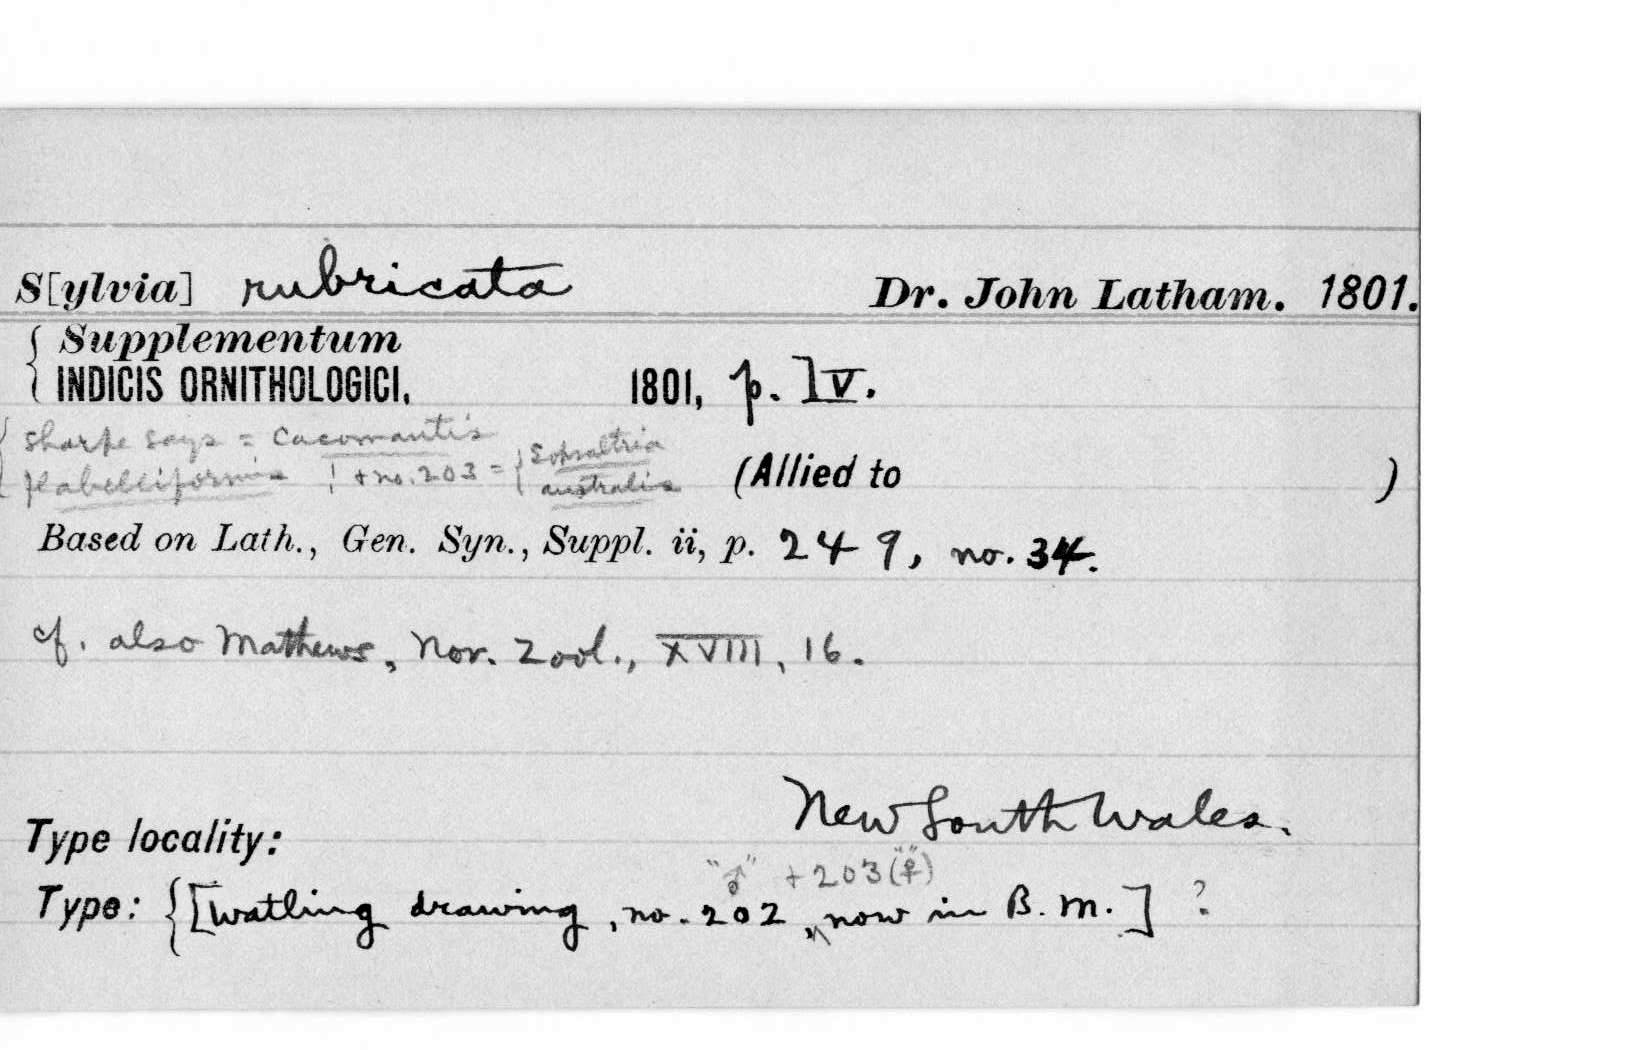 S[ylvia] rubricata Dr. John Latham. 1801.
{ Supplementum
{ INDICIS ORNITHOLOGICI, 1801, p. lv.
{ Sharpe says = Cacomantis
flabelliformis ! + no. 203 = { Eopsaltria australis (Allied to )
Based on Lath., Gen. Syn., Suppl. ii, p. 249, no. 34.
cf. also Mathews, Nov. Zool., XVIII, 16.
New South Wales.
Type locality:
"♂" + 203 ("♀")
Type: {[Watling drawing, no. 202, ^ now in B. M.] ?